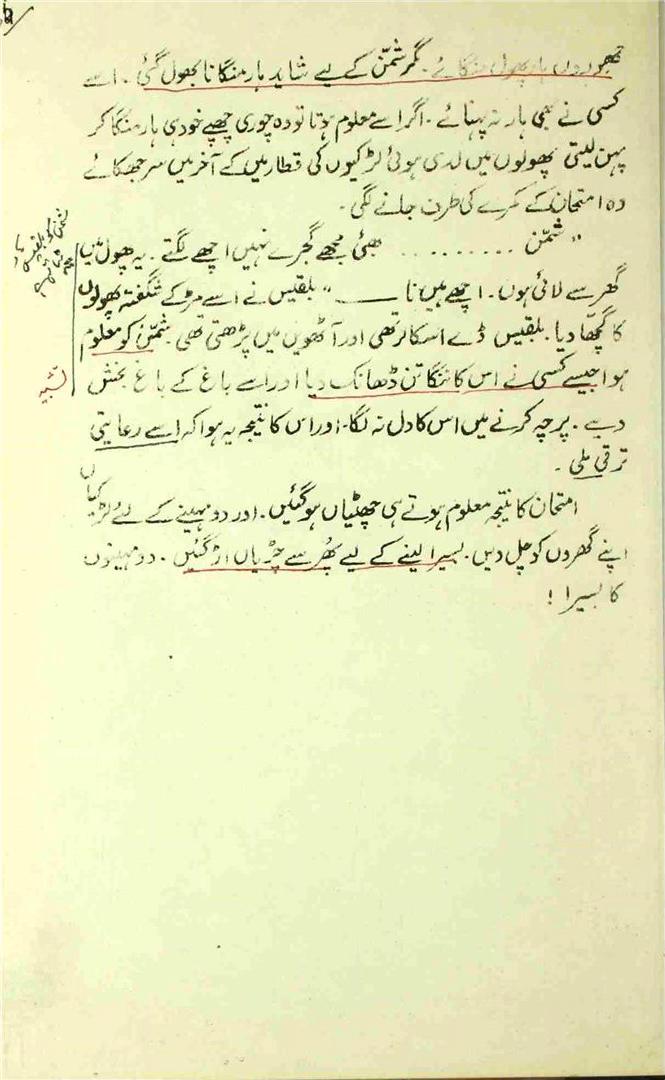 ہار پھول منگائے۔ مگر شمّن کے لیے شاید ہار منگانا بھول گئی۔ اسے
کسی نے بھی ہار نہ پہنائے۔ اگر اسے معلوم ہوتا تو وہ چوری چھپے خود ہی ہار منگا کر
پہن لیتی پھولوں میں لدی ہوئی لڑکیوں کی قطار میں کے آخر میں سر جھکائے
وہ امتحان کے کمرے کی طرف جانے لگی۔
”شمّن ......... بھئی مجھے گجرے نہیں اچھے لگتے۔ یہ پھول میں
گھر سے لائی ہوں۔ اچھے ہیں نا ——“ بلقیس نے اسے مڑ کے شگفتہ پھولوں
کا گچھا دیا۔ بلقیس ڈے اسکالر تھی اور آٹھویں میں پڑھتی تھی۔ شمّن کو معلوم
ہوا جیسے کسی نے اس کا ننگا تن ڈھانک دیا اور اسے باغ کے باغ بخش
دیے۔ پرچہ کرنے میں اس کا دل نہ لگا۔ اور اس کا نتیجہ یہ ہوا کہ اسے رعایتی
ترقی ملی۔
امتحان کا نتیجہ معلوم ہوتے ہی چھٹیاں ہو گئیں۔ اور دو مہینے کے لئے لڑکیاں
اپنے گھروں کو چل دیں۔ بسیرا لینے کے لیے پھُر سے چڑیاں اڑ گئیں۔ دو مہینوں
کا بسیرا!
تشبیہ